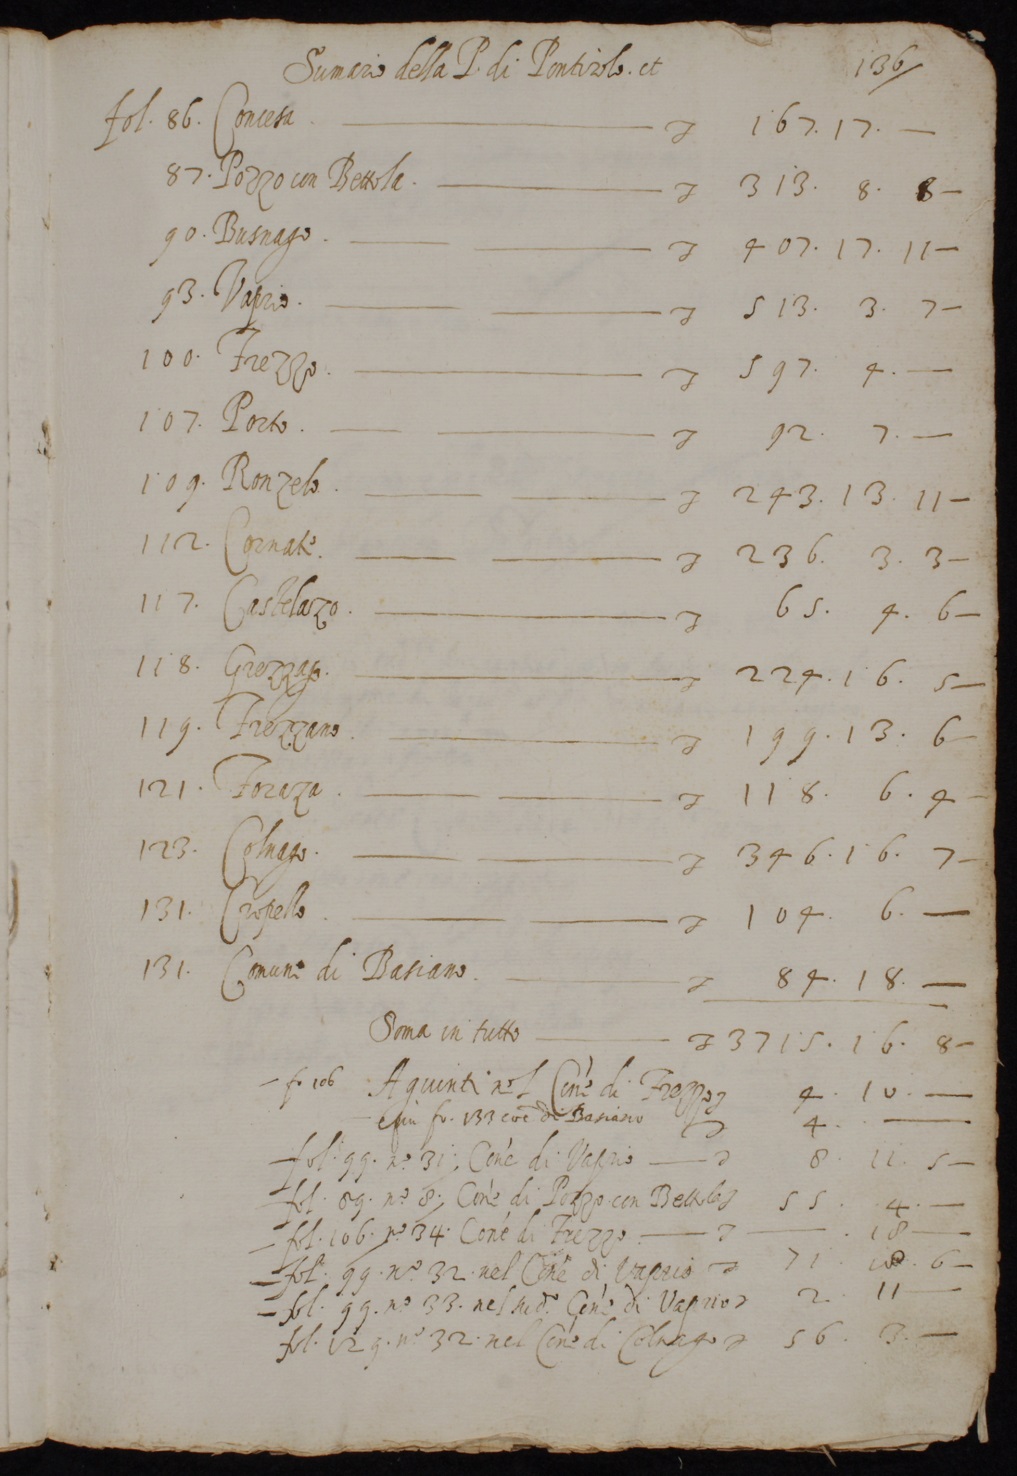 Sumario della P. di Pontirolo. et 136
fol. 86. Concesa. ₰ 167. 17. —
87. Pozzo con Bettola. ₰ 313. 8. 8 —
90. Busnago. ₰ 407. 17. 11 —
93. Vaprio. ₰ 513. 3. 7 —
100. Trezzo. ₰ 597. 4. —
107. Porto. ₰ 92. 7. —
109. Ronzelo. ₰ 243. 13. 11 —
112. Cornate. ₰ 236. 3. 3 —
117. Castelazo. ₰ 65. 4. 6 —
118. Grezzago. ₰ 224. 16. 5 —
119. Trezzano. ₰ 199. 13. 6 —
121. Foraza. ₰ 118. 6. 4 —
123. Colnago. ₰ 346. 16. 7 —
131. Cropello. ₰ 104. 6. —
131. Comune di Basiano. ₰ 84. 18. —
Soma in tutto ₰ 3715. 16. 8 —
— fo 106 Agiunti nel Cone di Trezzo ₰ 4. 10. —
— fo. 133 di Basiano ₰ 4. —
— fol. 99. no 31. Cone di Vaprio ₰ 8. 11. 5 —
— fol. 89. no 8. Cone di Pozzo con Bettola ₰ 55. 4. —
— fol. 106. no 34. Cone di Trezzo. ₰ — . 18 —
— fol. 99. no 32. nel Cone di Vaprio ₰ 71. 10. 6 —
— fol. 99. no 33. nel sud.o Cone di Vaprio ₰ 2. 11 —
fol. 129. no 32. nel Cone di Colnago ₰ 56. 3. —